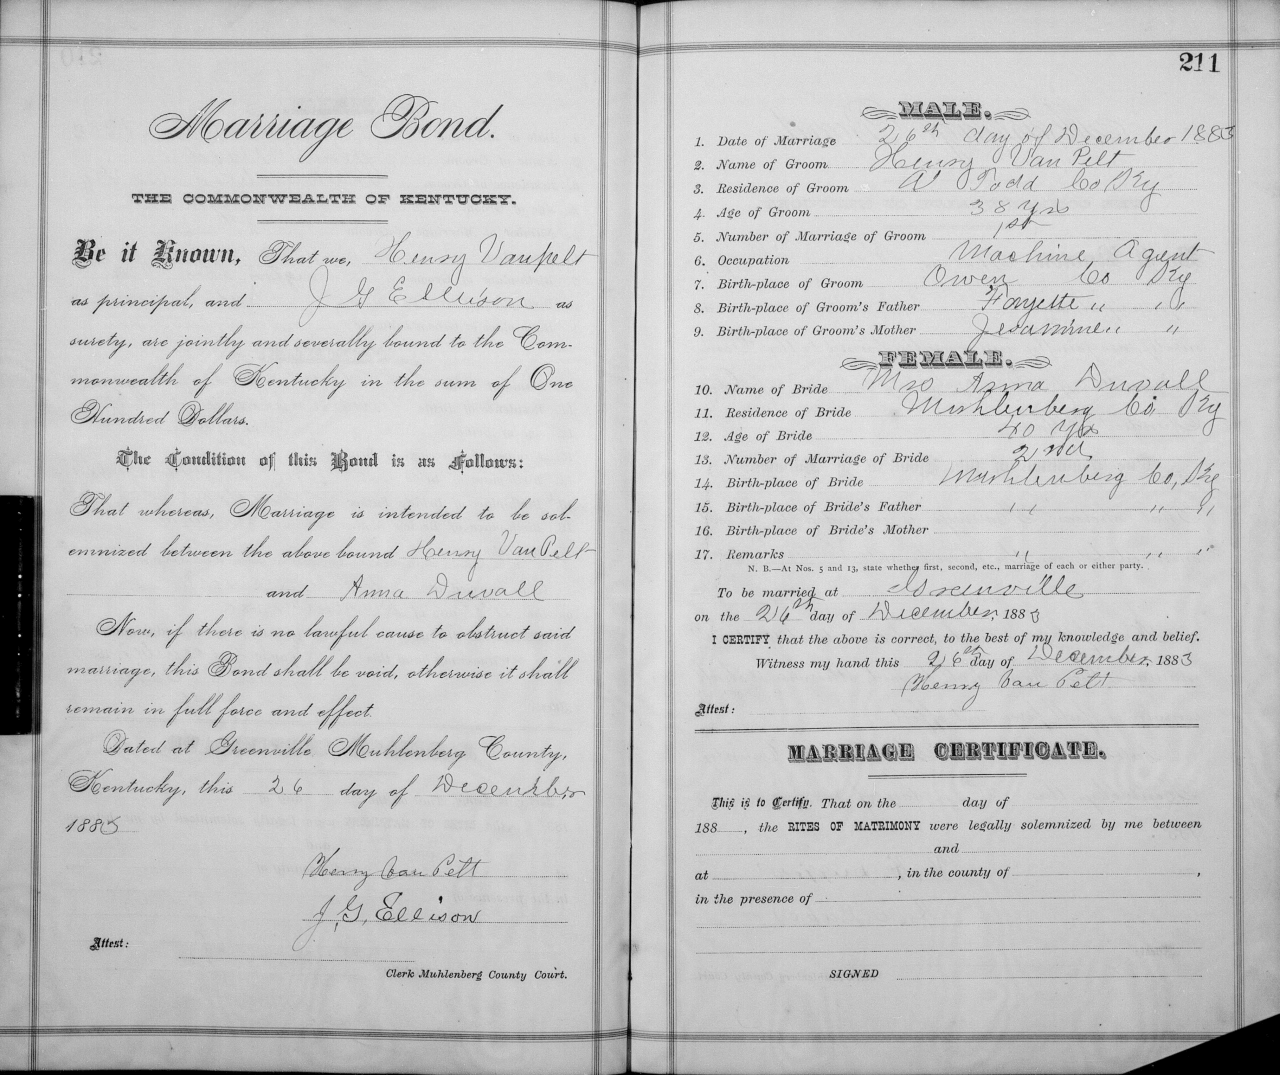 Marriage Bond.
THE COMMONWEALTH OF KENTUCKY.
Be it Known, That we, Henry Vanpelt
as principal, and J G Ellison as
surety, are jointly and severally bound to the Com-
monwealth of Kentucky in the sum of One
Hundred Dollars.
The Condition of this Bond is as Follows:
That whereas, Marriage is intended to be sol-
emnized between the above bound Henry Van Pelt
and Anna Duvall
Now, if there is no lawful cause to obstruct said
marriage, this Bond shall be void, otherwise it shall
remain in full force and effect.
Dated at Greenville Muhlenberg County,
Kentucky, this 26 day of December
1883
Henry Van Pelt
J. G. Ellison
Attest:
Clerk Muhlenberg County Court.
211
MALE.
1. Date of Marriage 26th day of December 1883
2. Name of Groom Henry Van Pelt
3. Residence of Groom Todd Co Ky
4. Age of Groom 38 yrs
5. Number of Marriage of Groom 1st
6. Occupation Machine Agent
7. Birth-place of Groom Owen Co Ky
8. Birth-place of Groom's Father Fayette " "
9. Birth-place of Groom's Mother Jessamine " "
FEMALE.
10. Name of Bride Mrs Anna Duvall
11. Residence of Bride Muhlenberg Co Ky
12. Age of Bride 40 yrs
13. Number of Marriage of Bride 2nd
14. Birth-place of Bride Muhlenberg Co, Ky
15. Birth-place of Bride's Father " " "
16. Birth-place of Bride's Mother
17. Remarks " " "
N. B.—At Nos. 5 and 13, state whether first, second, etc., marriage of each or either party.
To be married at Greenville
on the 26th day of December, 1883
I CERTIFY that the above is correct, to the best of my knowledge and belief.
Witness my hand this 26th day of December, 1883
Henry Van Pelt
Attest:
MARRIAGE CERTIFICATE.
This is to Certify, That on the day of
188 , the RITES OF MATRIMONY were legally solemnized by me between
and
at , in the county of ,
in the presence of
SIGNED